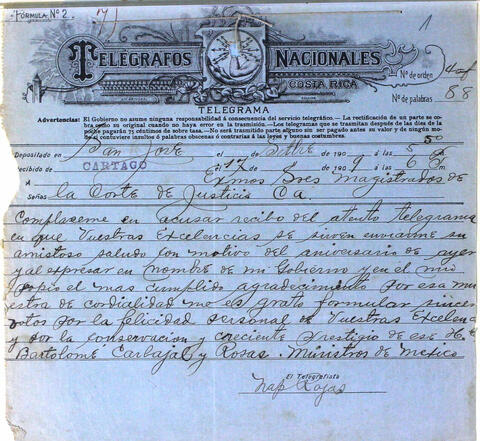 FÓRMULA Nº 2.
1
TELÉGRAFOS NACIONALES
COSTA RICA
Nº de orden
TELEGRAMA
Nº de palabras 88
Advertencias: El Gobierno no asume ninguna responsabilidad á consecuencia del servicio telegráfico. — La rectificación de un parte se co-
bra como su original cuando no haya error en la trasmisión. — Los telegramas que se trasmitan después de las diez de la
noche pagarán 75 céntimos de sobre tasa. — No será trasmitido parte alguno sin ser pagado antes su valor y de ningún mo-
do si contuviere insultos ó palabras obscenas ó contrarias á las leyes y buenas costumbres.
Depositado en San José el de Stbre de 190 á las 5
Recibido de CARTAGO El 17 de 190 9 á las 6
Exmos Sres Magistrados de
Señas la Corte de Justicia Ca.
Complaseme en acusar recibo del atento telegrama
en que Vuestras Excelencias se sirven enviarme su
amistoso saludo con motivo del aniversario de ayer
y al espresar en nombre de mi Gobierno y en el mio
propio el mas cumplido agradecimiento por esa mu
estra de cordialidad me es grato formular since
votos por la felicidad personal de Vuestras Excelenc
y por la conservacion y creciente prestigio de ese
Bartolomé Carbajal y Rosas. Ministros de Mexico
El Telegrafista
Nap Rojas